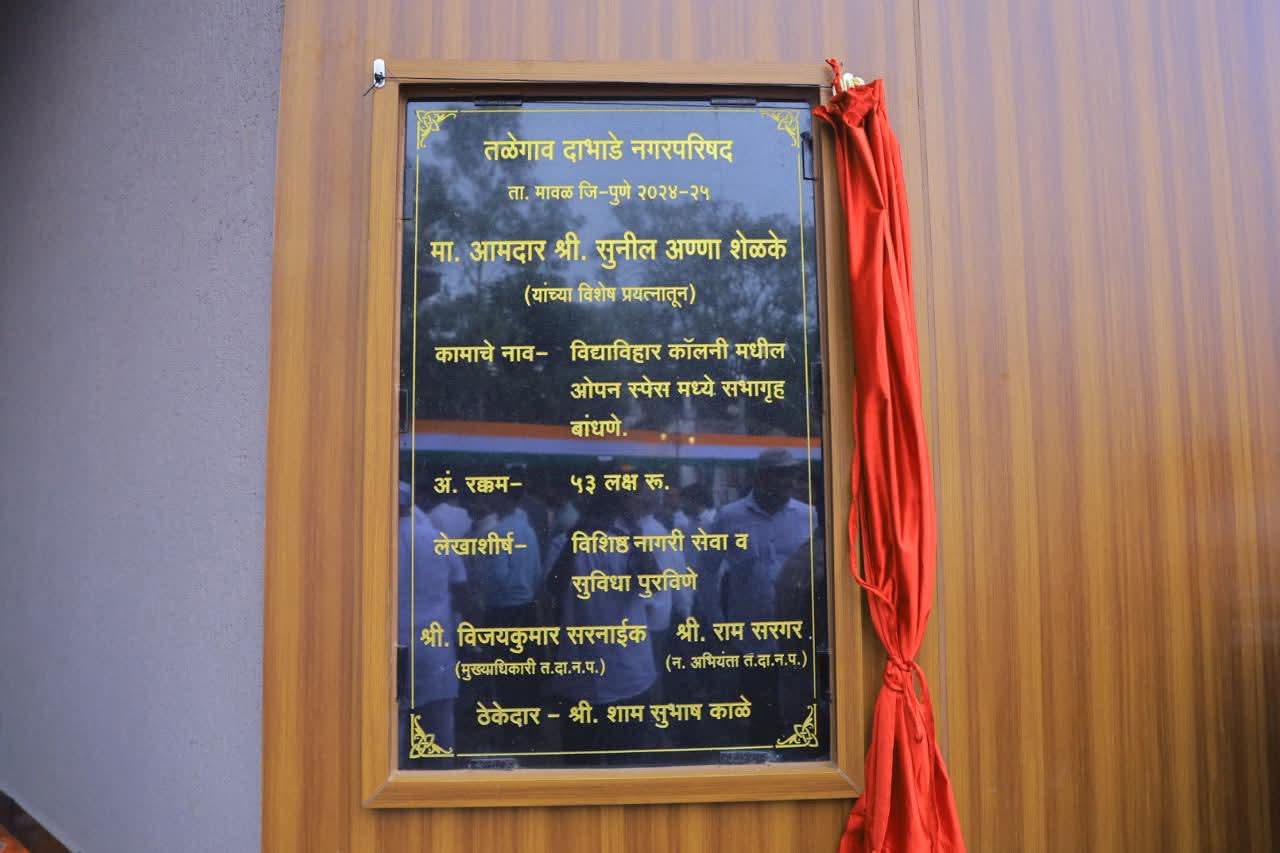 तळेगाव दाभाडे नगरपरिषद
ता. मावळ जि-पुणे २०२४-२५
मा. आमदार श्री. सुनील अण्णा शेळके
(यांच्या विशेष प्रयत्नातून)
कामाचे नाव- विद्याविहार कॉलनी मधील
ओपन स्पेस मध्ये सभागृह
बांधणे.
अं. रक्कम- ५३ लक्ष रू.
लेखाशीर्ष- विशिष्ठ नागरी सेवा व
सुविधा पुरविणे
श्री. विजयकुमार सरनाईक श्री. राम सरगर
(मुख्याधिकारी त.दा.न.प.) (न. अभियंता त.दा.न.प.)
ठेकेदार - श्री. शाम सुभाष काळे